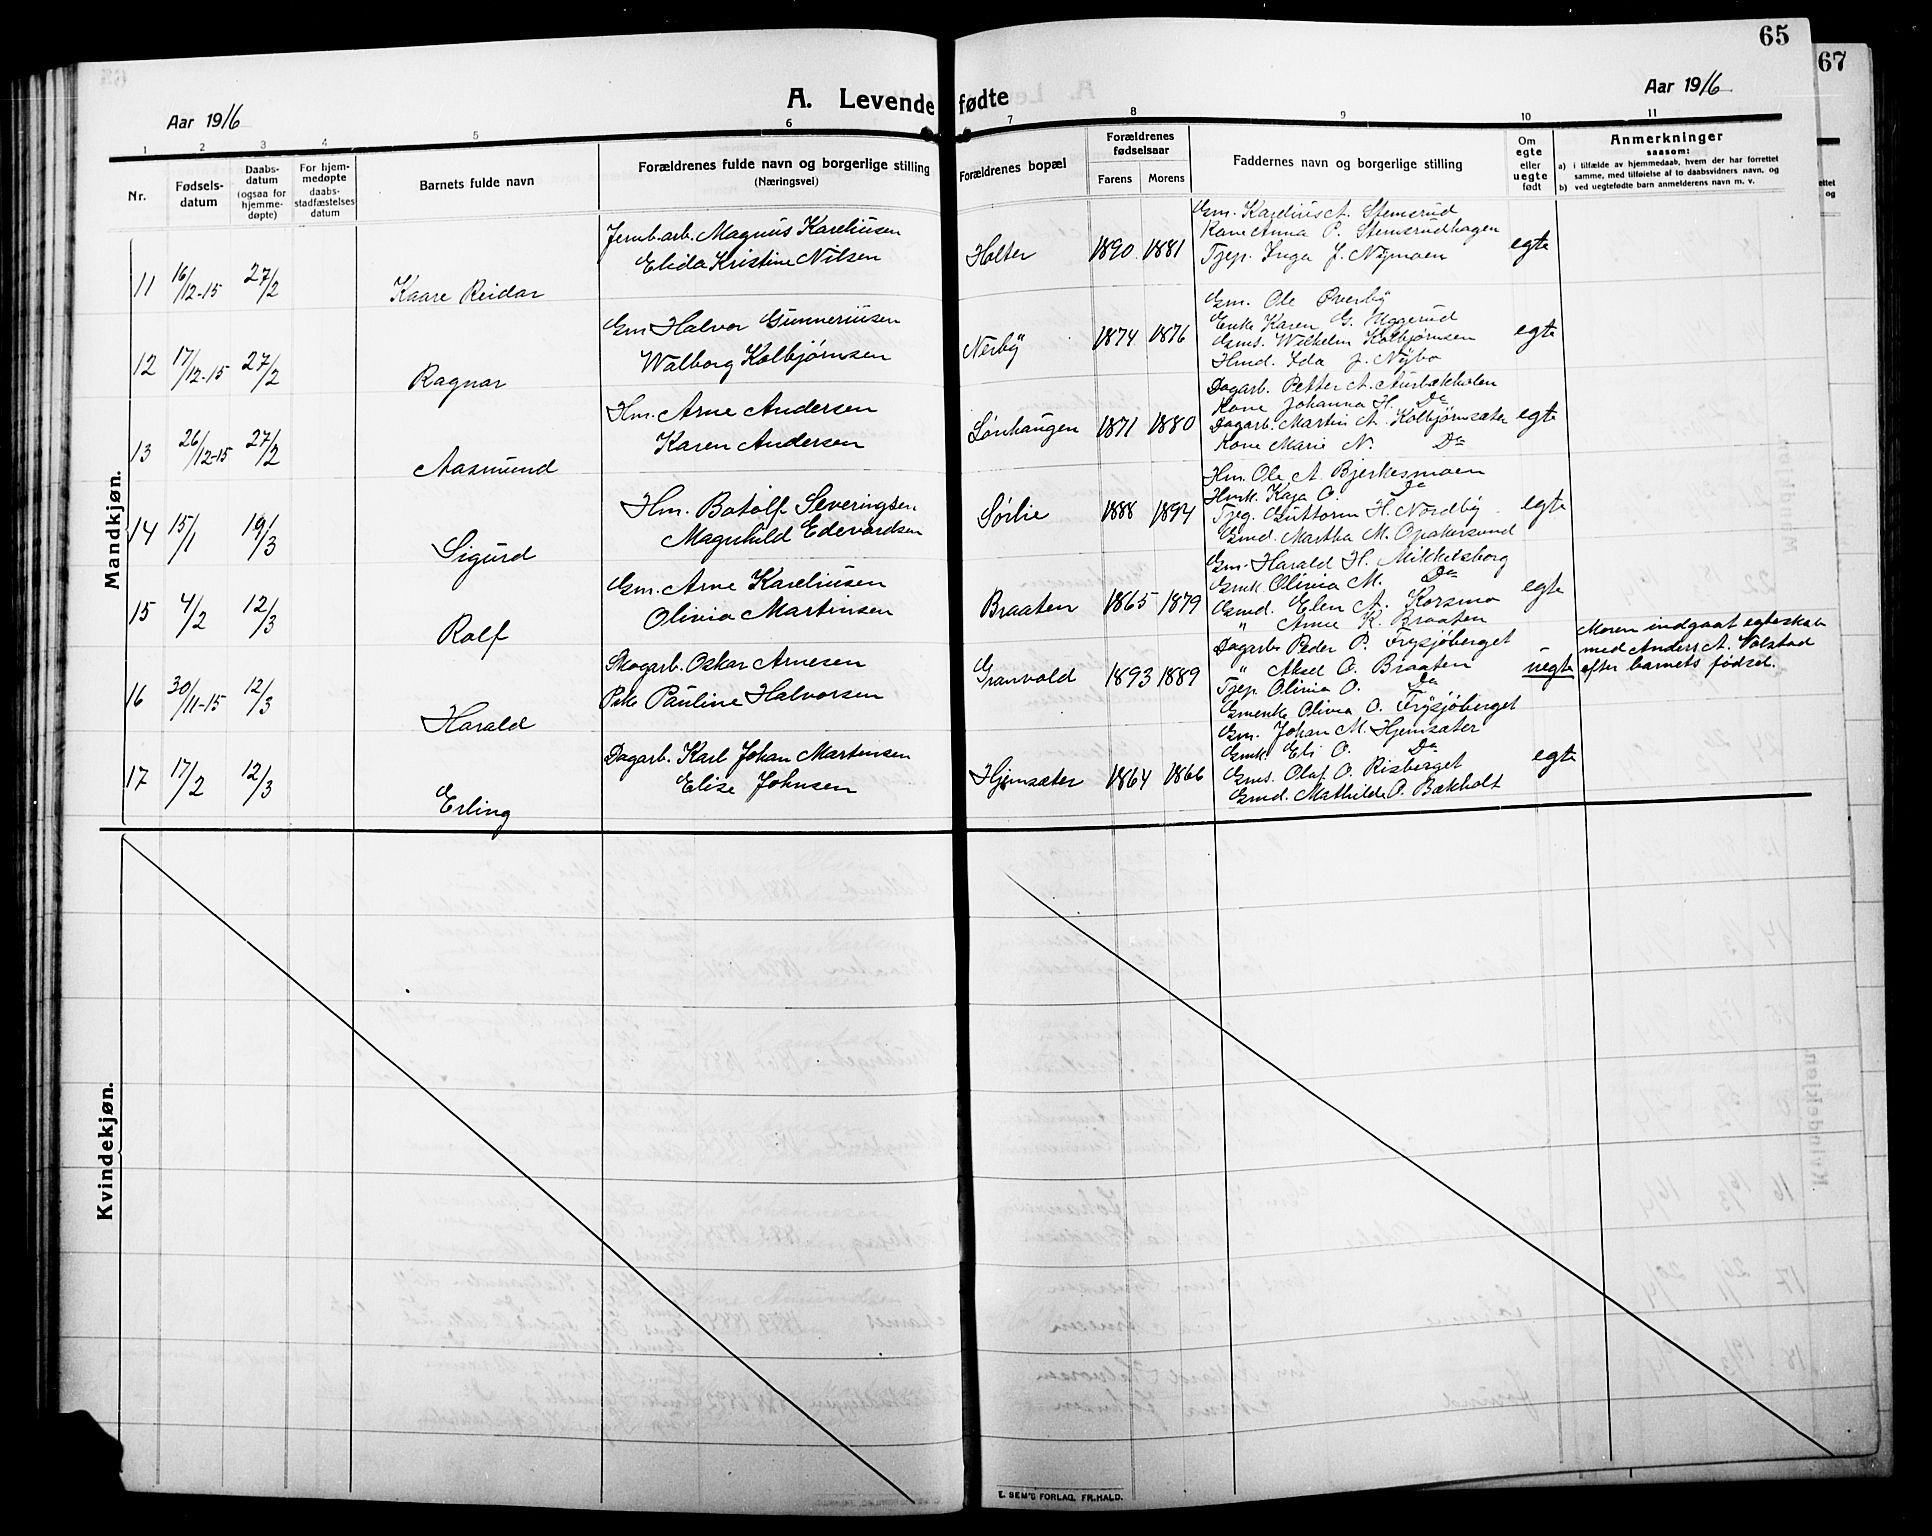 65
67
A. Levende fødte
Aar 1916
Aar 1916
1 2 3 4 5 6 7 8 9 10 11
Nr.
Fødsels-
datum
Daabs-
datum
(ogsaa for
hjemme-
døpte)
For hjem-
medøpte
daabs-
stadfæstelses
datum
Barnets fulde navn
Forældrenes fulde navn og borgerlige stilling
(Næringsvei)
Forældrenes bopæl
Forældrenes
fødselsaar
Farens Morens
Faddernes navn og borgerlige stilling
Om
egte
eller
uegte
født
Anmerkninger
saasom:
a) i tilfælde av hjemmedaab, hvem der har forrettet
samme, med tilføielse af to daabsvidners navn, og
b) ved uegtefødte barn anmelderens navn m. v.
Mandkjøn.
11 16/12-15 27/2 Kaare Reidar
Jernb.arb. Magnus Kareliusen
Elida Kristine Nilsen
Holter 1890 1881
Gm. Karelius A. Stemsrud
Kone Anna P. Stemsrudhagen
Tjep. Inga J. Nymoen
egte
12 17/12-15 27/2 Ragnar
Gm. Halvor Gunneriusen
Walborg Kolbjørnsen
Nerby 1874 1876
Gm. Ole Overby
Enke Karen G. Uggerud
Gms. Wilhelm Kolbjørnsen
Hmd. Ida J. Nybo
egte
13 26/12-15 27/2 Aasmund
Hm. Arne Andersen
Karen Andersen
Lønhaugen 1871 1880
Dagarb. Petter A. Aurbækholen
Kone Johanna H. Do
Dagarb. Martin A. Kolbjørnsæter
Kone Marie N. Do
egte
14 15/1 19/3 Sigurd
Hm. Botolf Severingsen
Magnhild Edevardsen
Sørlie 1888 1894
Hm. Ole A. Bjerkesmoen
Hmk. Kaja O. Do
Tjeg. Guttorm H. Nordby
Gmd. Martha M. Opakersund
egte
15 4/2 12/3 Rolf
Gm. Arne Kareliusen
Olivia Martinsen
Braaten 1865 1879
Gm. Harald H. Mikkelsborg
Gmk. Olivia M. Do
Gmd. Elen A. Korsmo
" Anne K. Braaten
egte
16 30/11-15 12/3 Harald
Skogarb. Oskar Arnesen
Pike Pauline Halvorsen
Granvold 1893 1889
Dagarb. Peder P. Frysjøberget
" Aksel O. Braaten
Tjep. Olivia O. Do
Gmenke Olivia O. Frysjøberget
uegte
Moren indgaat egteskab
med Anders A. Volstad
efter barnets fødsel.
17 17/2 12/3 Erling
Dagarb. Karl Johan Martinsen
Elise Johnsen
Hjemsæter 1864 1866
Gm. Johan M. Hjemsæter
Gmk. Eli O. Do
Gms. Olaf O. Risberget
Gmd. Mathilde P. Bækholt
egte
Kvindekjøn.
E. SEM'S FORLAG, FR.HALD.